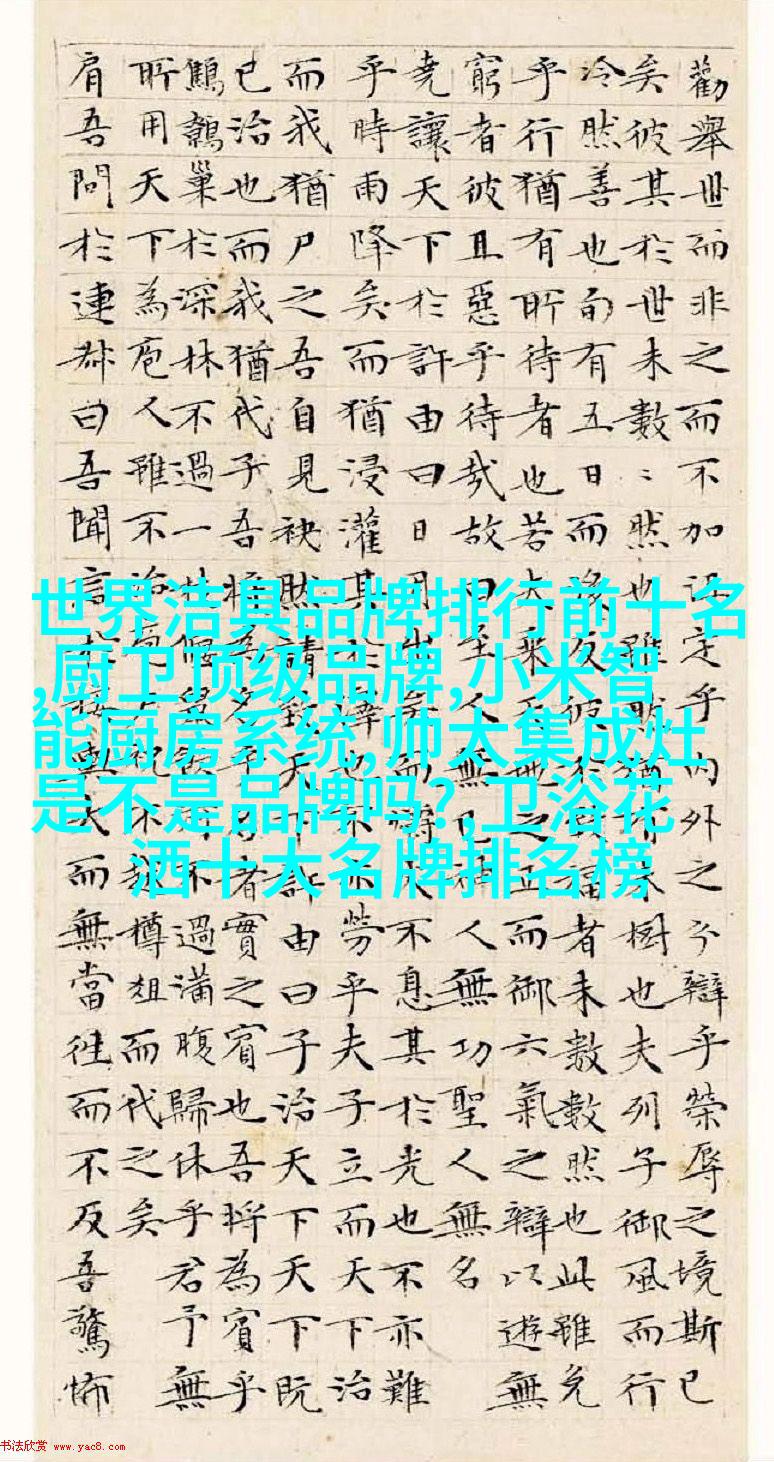 勸舉世而非之而不加沮定乎內外之分辯乎榮辱之境斯已
矣彼其於世未數〻然也雖然猶有未樹也夫列子御風而行
泠然善也旬有五日而後反彼於致福者未數數然也此雖免
乎行猶有所待者也若夫乘天地之正而御六氣之辯以遊無
窮者彼且惡乎待哉故曰至人無己神人無功聖人無名
堯讓天下於許由曰日月出矣而爝火不息其於光也不亦難
乎時雨降矣而猶浸灌其於澤也不亦勞乎夫子立而天下治
而我猶尸之吾自見缺然請致天下許由曰子治天下天下既
已治也而我猶代子吾將為名乎名者實之賓也吾將為賓乎
鷦鷯巢於深林不過一枝偃鼠飲河不過滿腹歸休乎君予無
所用天下為庖人雖不治庖尸祝不越樽俎而代之矣
肩吾問於連叔曰吾聞言於接輿大而無當往而不反吾驚怖
世界洁具品牌排行前十名
,厨卫顶级品牌,小米智
能厨房系统,帅太集成灶
是不是品牌吗?,卫浴花
洒十大名牌排名榜
书法欣赏 www.yac8.com